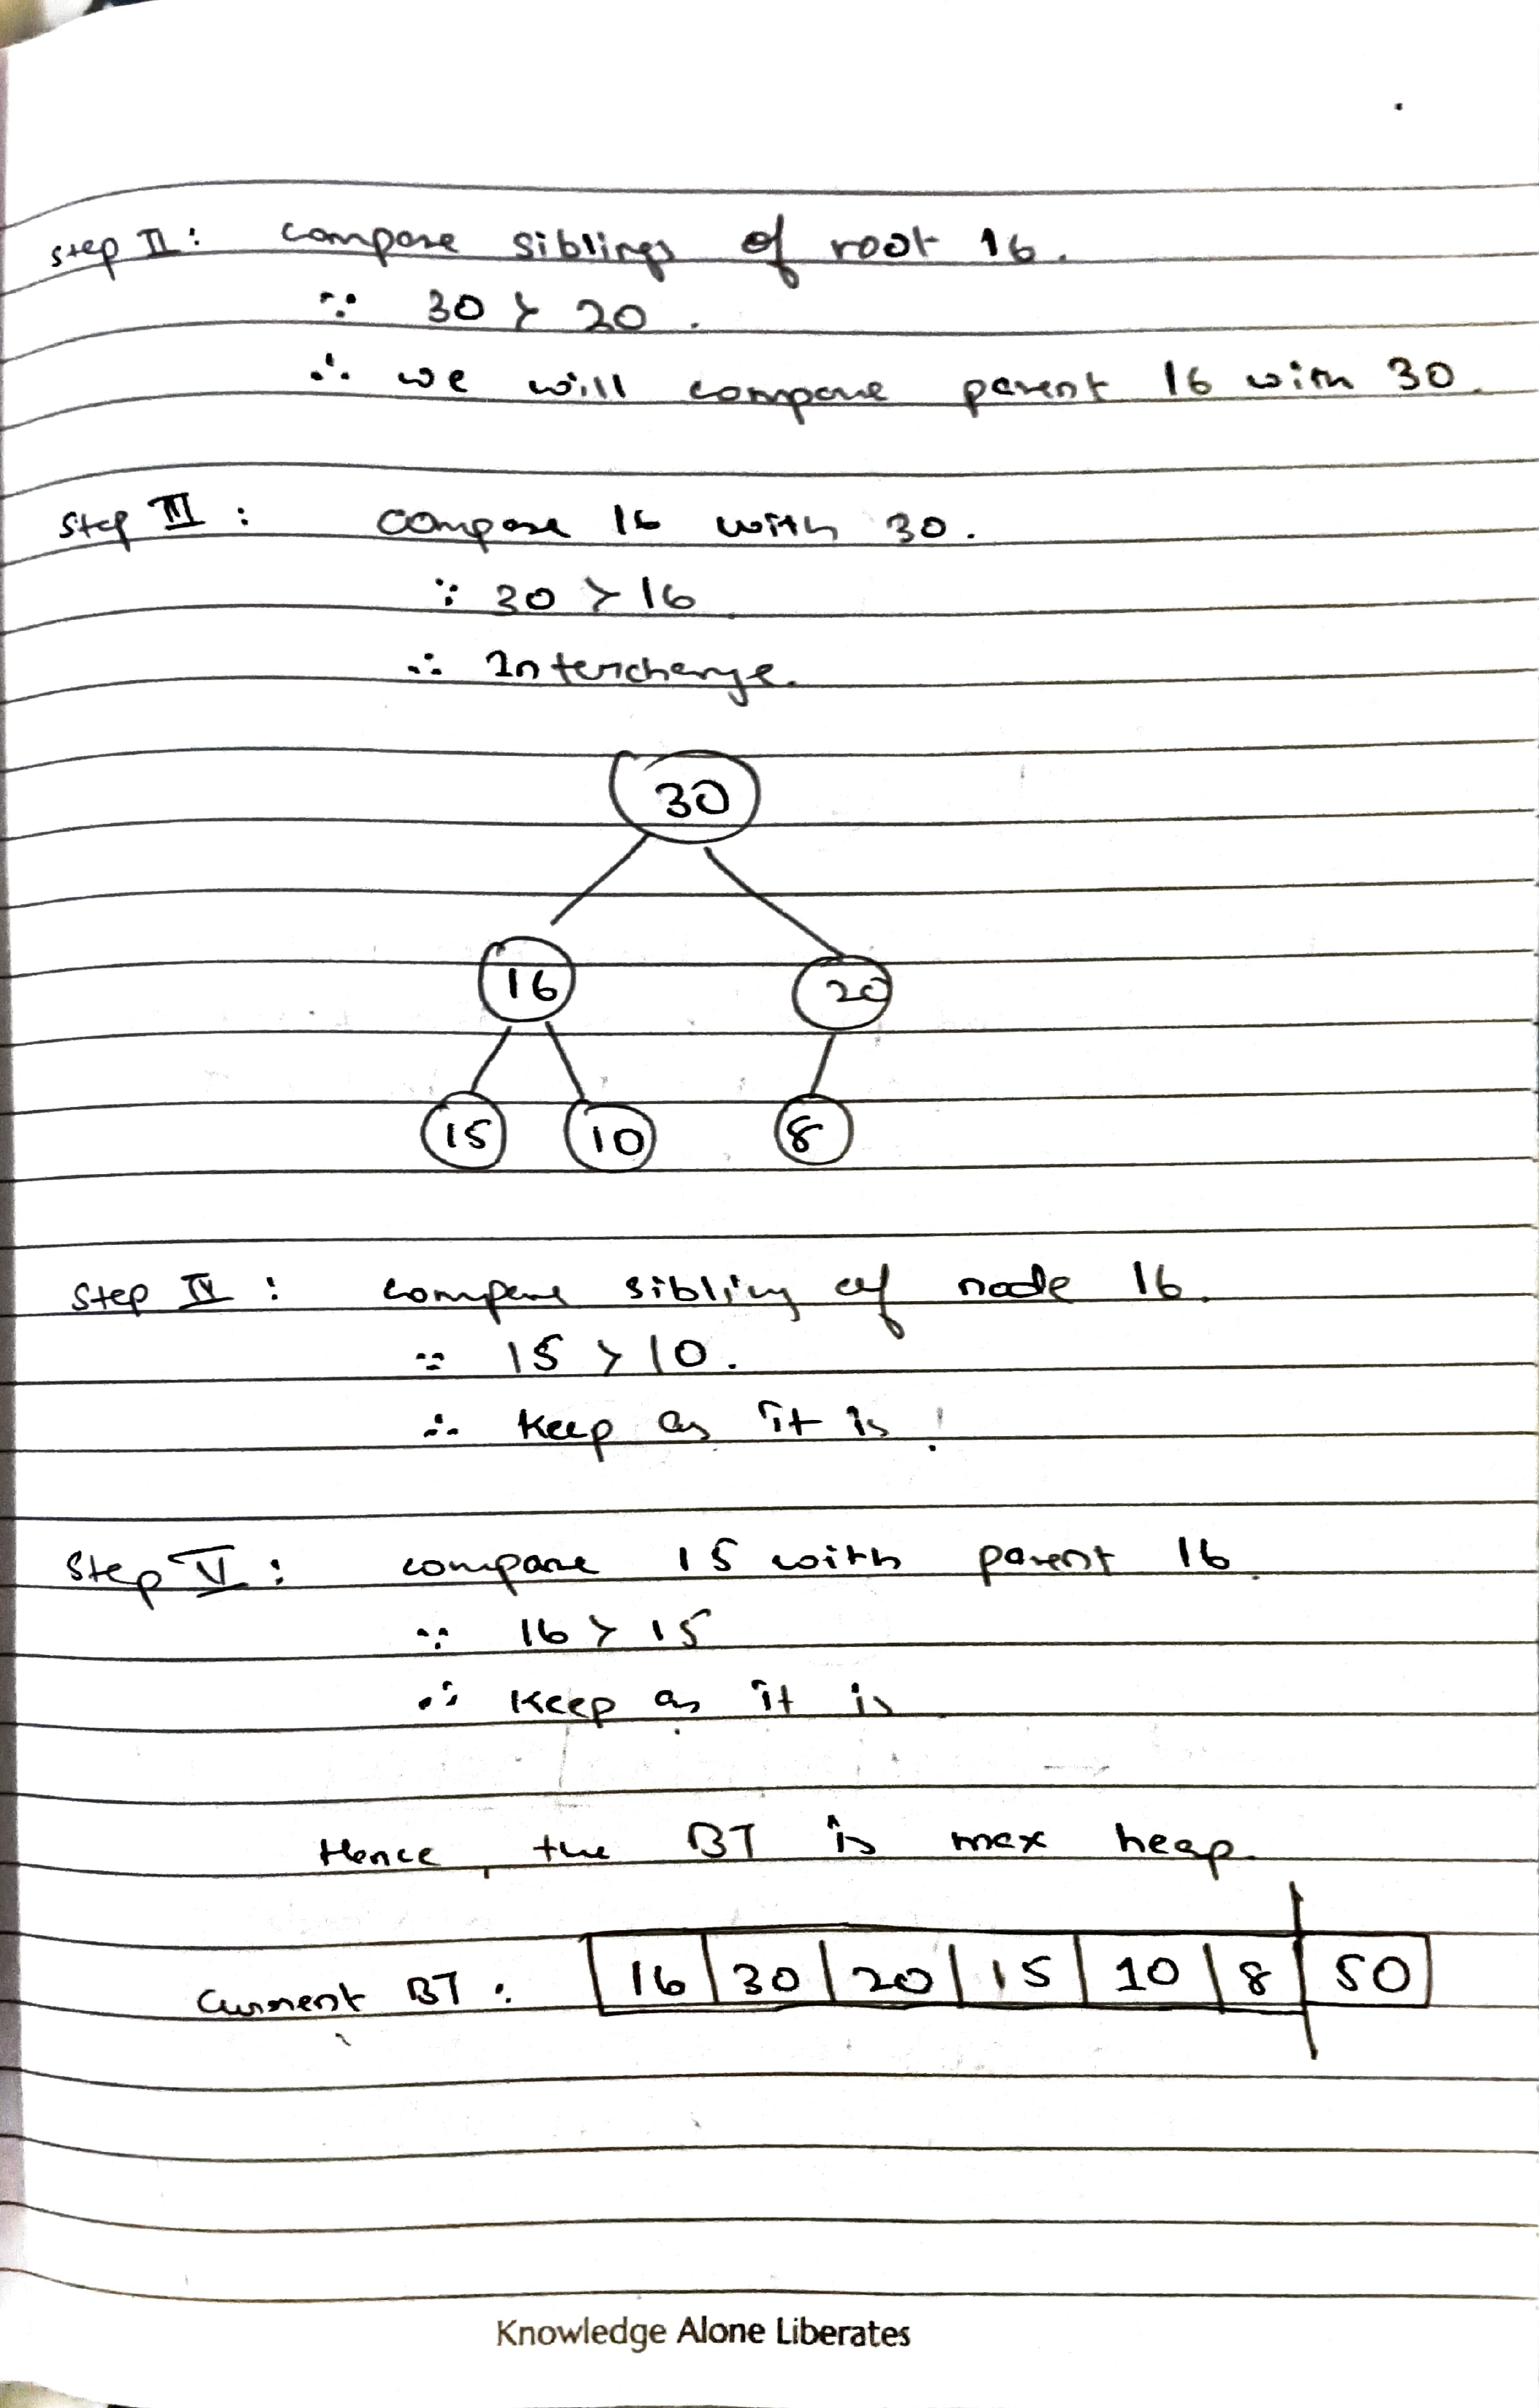 Step II : compare siblings of root 16.
∵ 30 > 20.
∴ we will compare parent 16 with 30.
Step III : compare 16 with 30.
∵ 30 > 16
∴ Interchange.
30
16 20
15 10 8
Step IV : compare sibling of node 16.
∵ 15 > 10.
∴ Keep as it is !
Step V : compare 15 with parent 16.
∵ 16 > 15
∴ Keep as it is
Hence, the BT is max heap.
Current BT : 16 30 20 15 10 8 50
Knowledge Alone Liberates